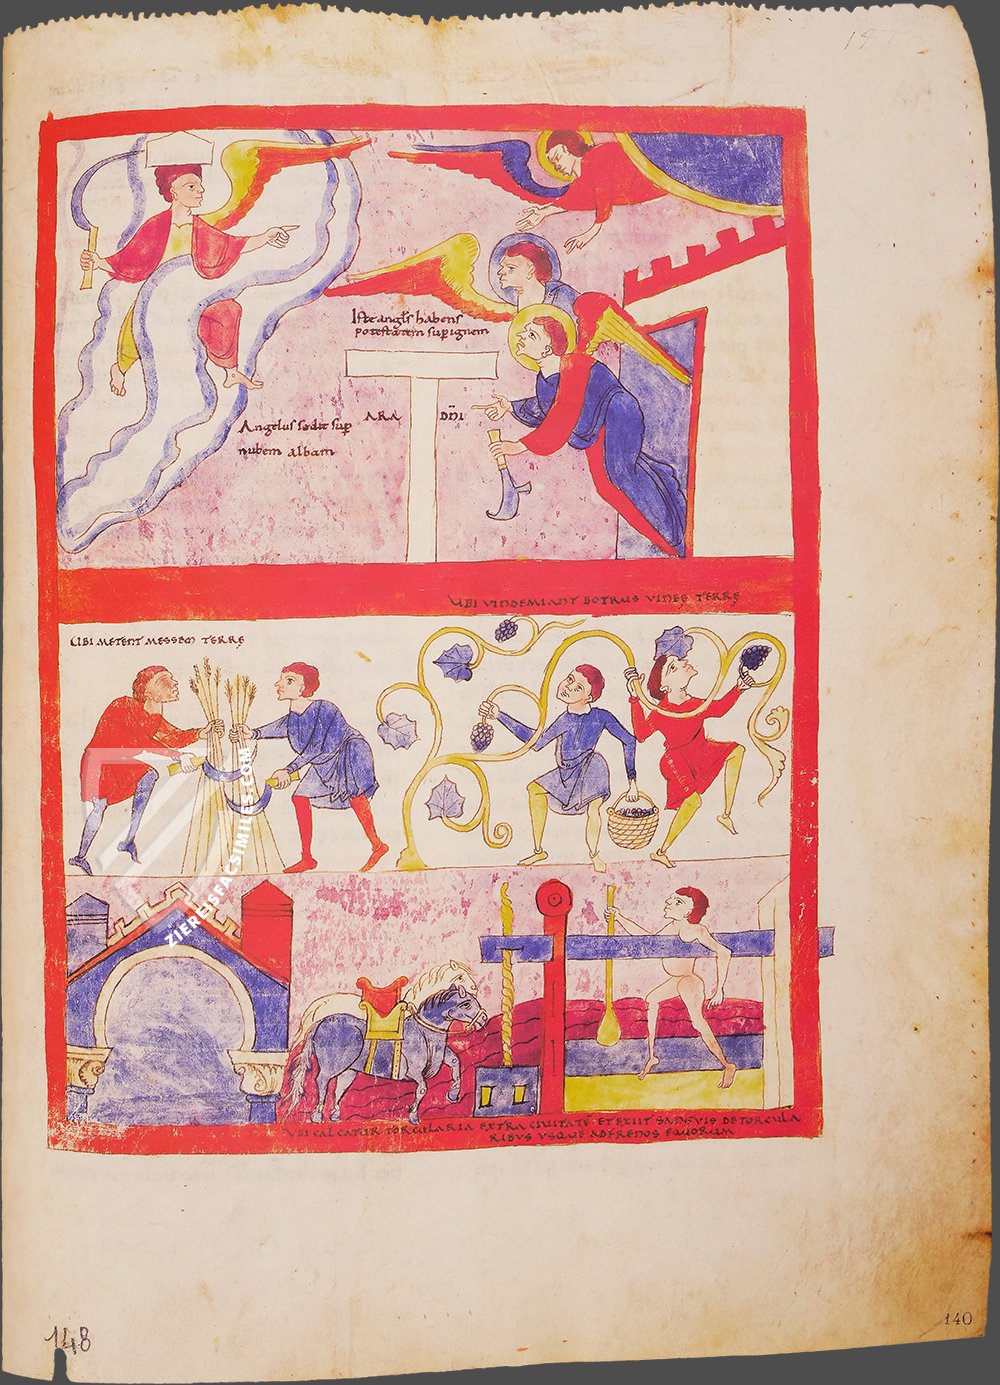 Iste angl's habens
potestatem sup ignem
ARA DNI
Angelus sedit sup
nubem albam
UBI VINDEMIANT BOTRUS VINEE TERRE
UBI METENT MESSEM TERRE
ZIEREISFACSIMILES.COM
UBI CALCATUR TORCULARIA EXTRA CIUITATE ET EXIIT SANGUIS DE TORCULA
RIBUS USQUE AD FRENOS EQUORUM
148
140